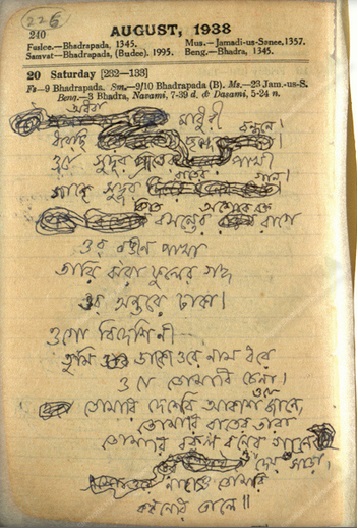 226
240
AUGUST, 1938
Fuslee.—Bhadrapada, 1345. Mus.—Jamadi-us-Sanee.1357.
Samvat—Bhadrapada, (Budee). 1995. Beng.—Bhadra, 1345.
20 Saturday [232—133]
Fs—9 Bhadrapada. Sm.—9/10 Bhadrapada (B). Ms.—23 Jam.-us-S.
Beng.—3 Bhadra, Navami, 7-39 d. & Dasami, 5-24 n.
অধরা মাধুরী
ধরেছি বন্ধনে।
ও যে সুদূর প্রাতের পাখী
গাহে সুদূর রাতের গান।
বসন্তের অশোক রক্ত রাগে
ওর রঙীন পাখা
তারি ঝরা ফুলের গন্ধ
ওর অন্তরে ঢাকা।
ওগো বিদেশিনী
তুমি ডাকো ওরে নাম ধরে
ও যে তোমারি চেনা।
তোমারি দেশের আকাশ ও যে জানে,
তোমারি রাতের তারা
তোমারি বকুল বনের গানে
দেয় সাড়া।
নাচে তোমারি
কঙ্কনেরি তালে॥